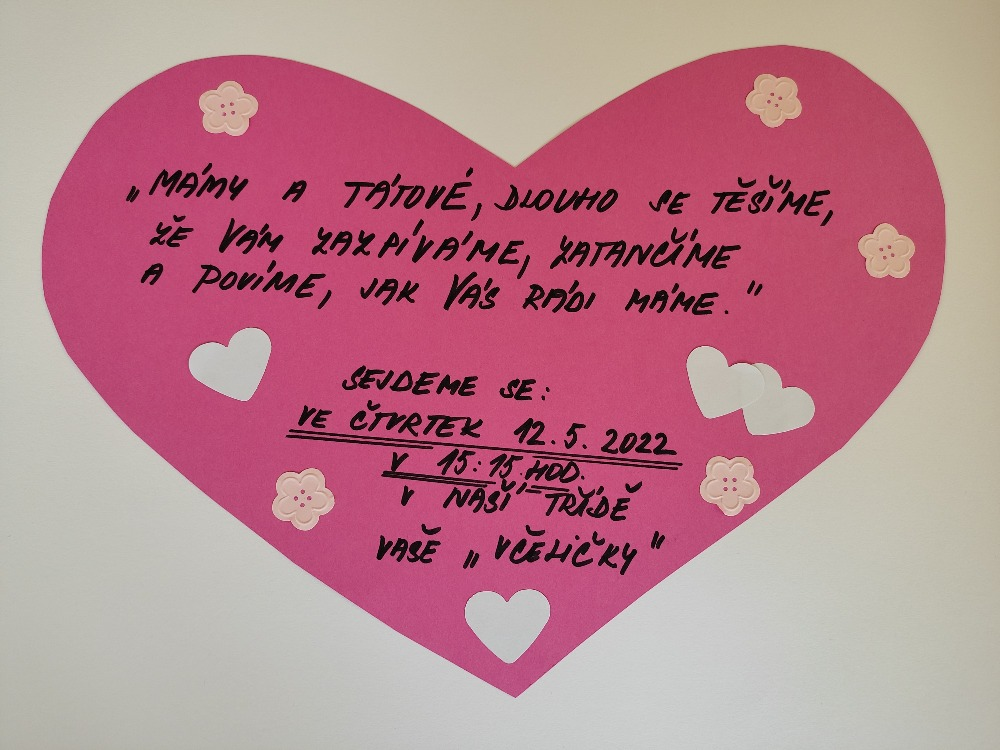 „MÁMY A TÁTOVÉ, DLOUHO SE TĚŠÍME,
ŽE VÁM ZAZPÍVÁME, ZATANČÍME
A POVÍME, JAK VÁS RÁDI MÁME."
SEJDEME SE:
VE ČTVRTEK 12.5.2022
V 15:15 HOD.
V NAŠÍ TŘÍDĚ
VAŠE „VČELIČKY"